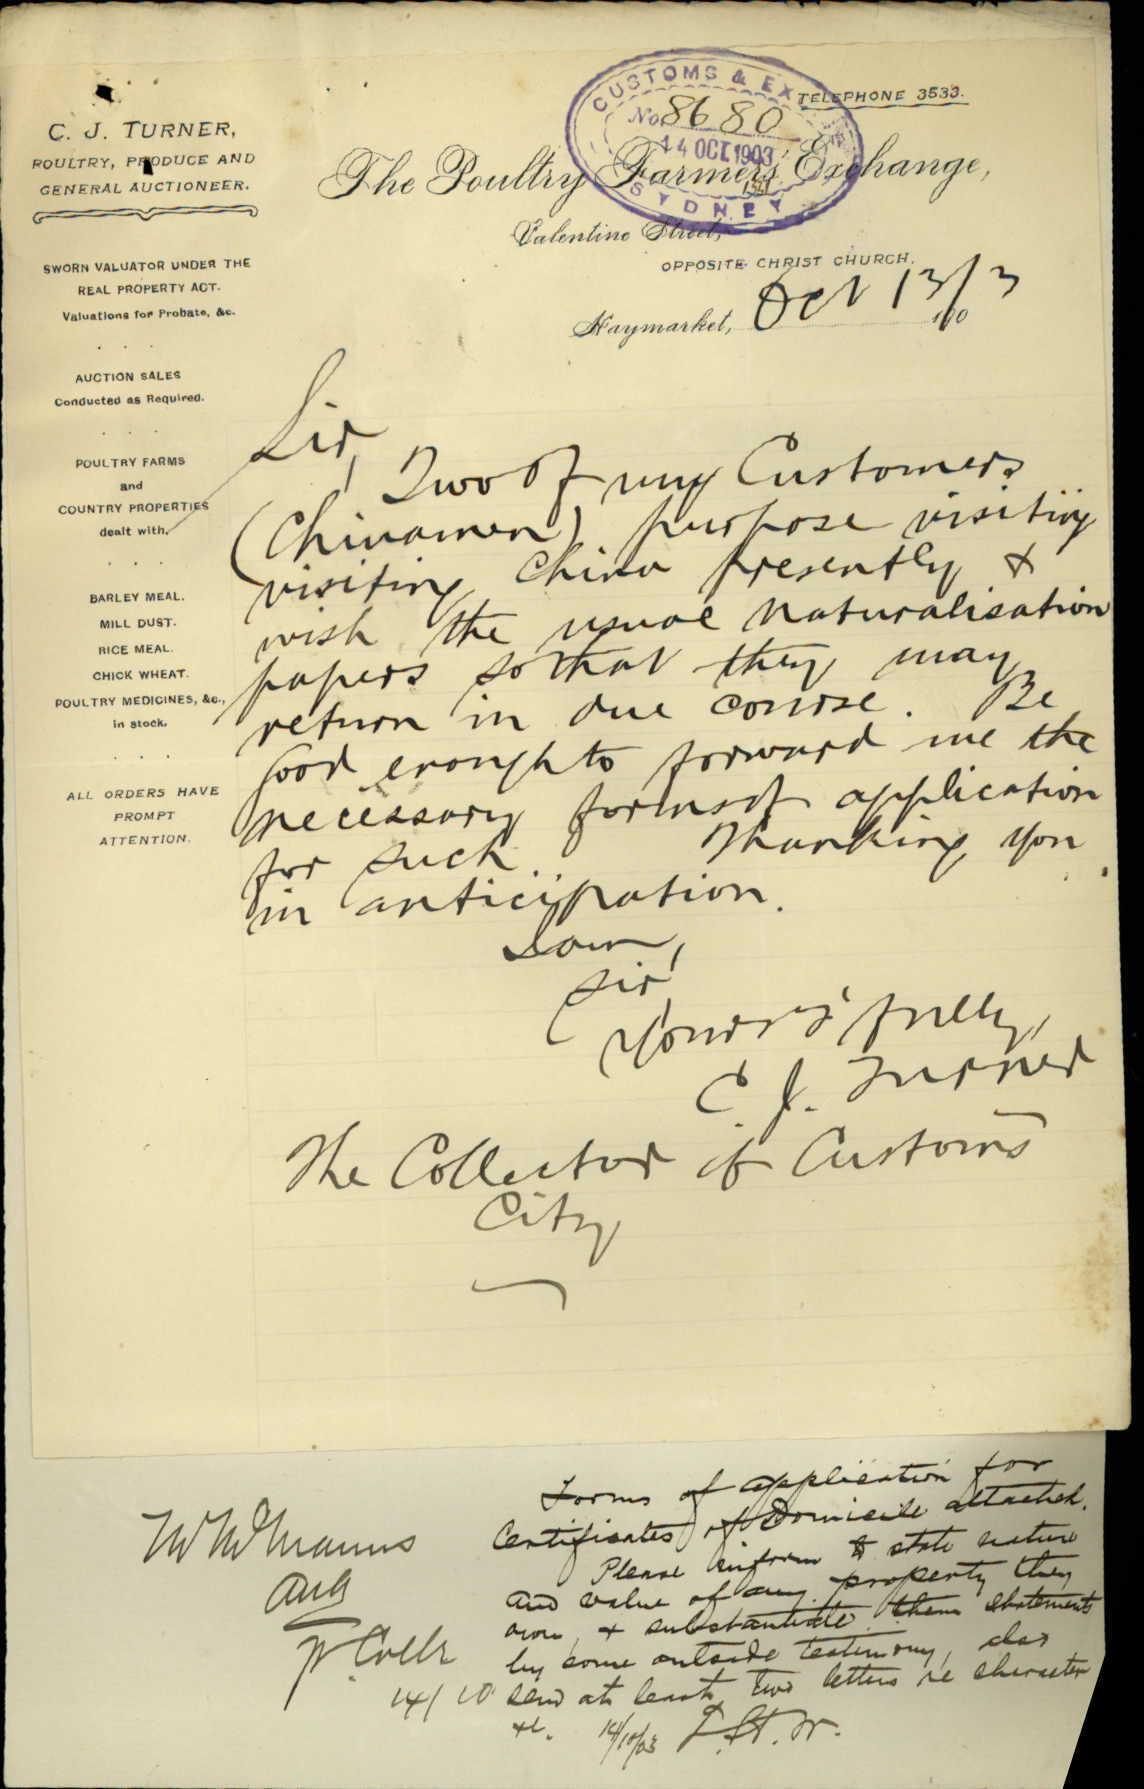 C. J. TURNER,
POULTRY, PRODUCE AND
GENERAL AUCTIONEER.
SWORN VALUATOR UNDER THE
REAL PROPERTY ACT.
Valuations for Probate, &c.
AUCTION SALES
Conducted as Required.
POULTRY FARMS
and
COUNTRY PROPERTIES
dealt with.
BARLEY MEAL.
MILL DUST.
RICE MEAL.
CHICK WHEAT.
POULTRY MEDICINES, &c.,
in stock.
ALL ORDERS HAVE
PROMPT
ATTENTION.
CUSTOMS & EX
No. 8680
14 OCT. 1903
SYDNEY
TELEPHONE 3533.
The Poultry Farmers' Exchange,
Valentine Street,
OPPOSITE CHRIST CHURCH.
Haymarket, Oct 13/3 190
Sir,
Two of my Customers
(Chinamen) purpose visiting
visiting China presently &
wish the usual naturalisation
papers so that they may
return in due course. Be
good enough to forward me the
necessary forms of application
for such. Thanking you
in anticipation.
I am,
Sir,
Yours f'fully,
C. J. Turner
The Collector of Customs
City
Forms of application for
Certificates of Domicile attached.
Please inform to state nature
and value of any property they
own, & substantiate them statements
by some outside testimony, also
send at least two letters re character
&c. 14/10/03
W McManus
p. Collr
14/10